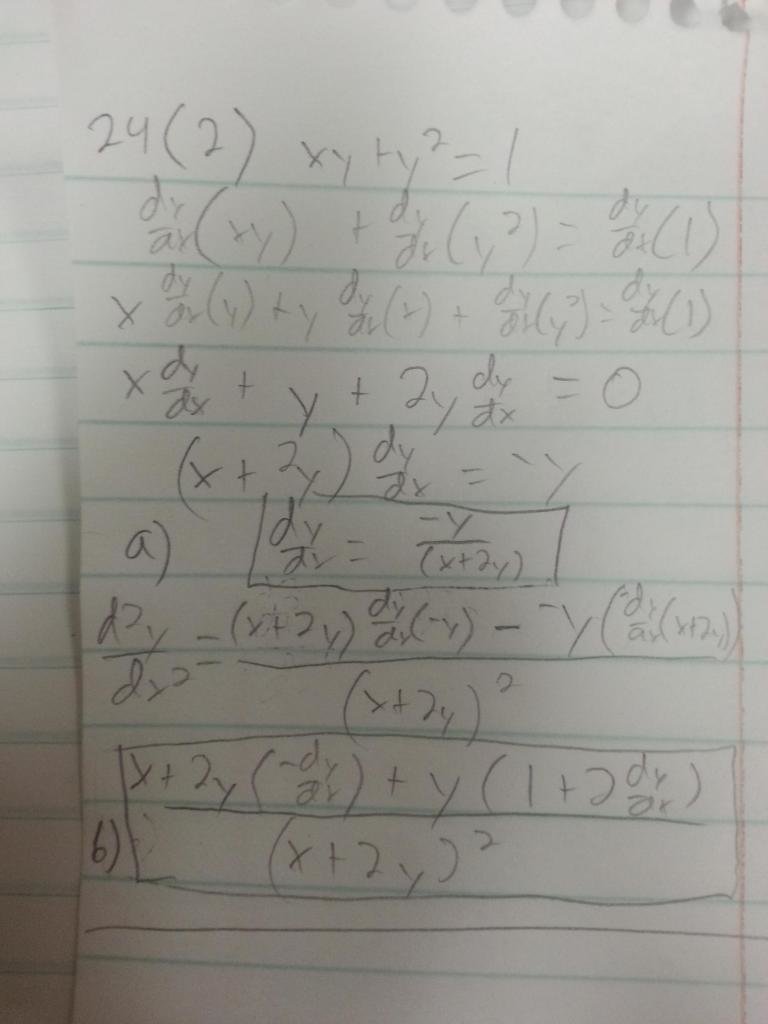 24(2) xy + y² = 1
dy/dx(xy) + dy/dx(y²) = dy/dx(1)
x dy/dx(y) + y dy/dx(x) + dy/dx(y²) = dy/dx(1)
x dy/dx + y + 2y dy/dx = 0
(x + 2y) dy/dx = -y
a) dy/dx = -y/(x+2y)
d²y/dx² = ((x+2y) dy/dx(-y) - -y(dy/dx(x+2y))/(x+2y)²
b) (x + 2y(-dy/dx) + y(1 + 2 dy/dx))/(x + 2y)²